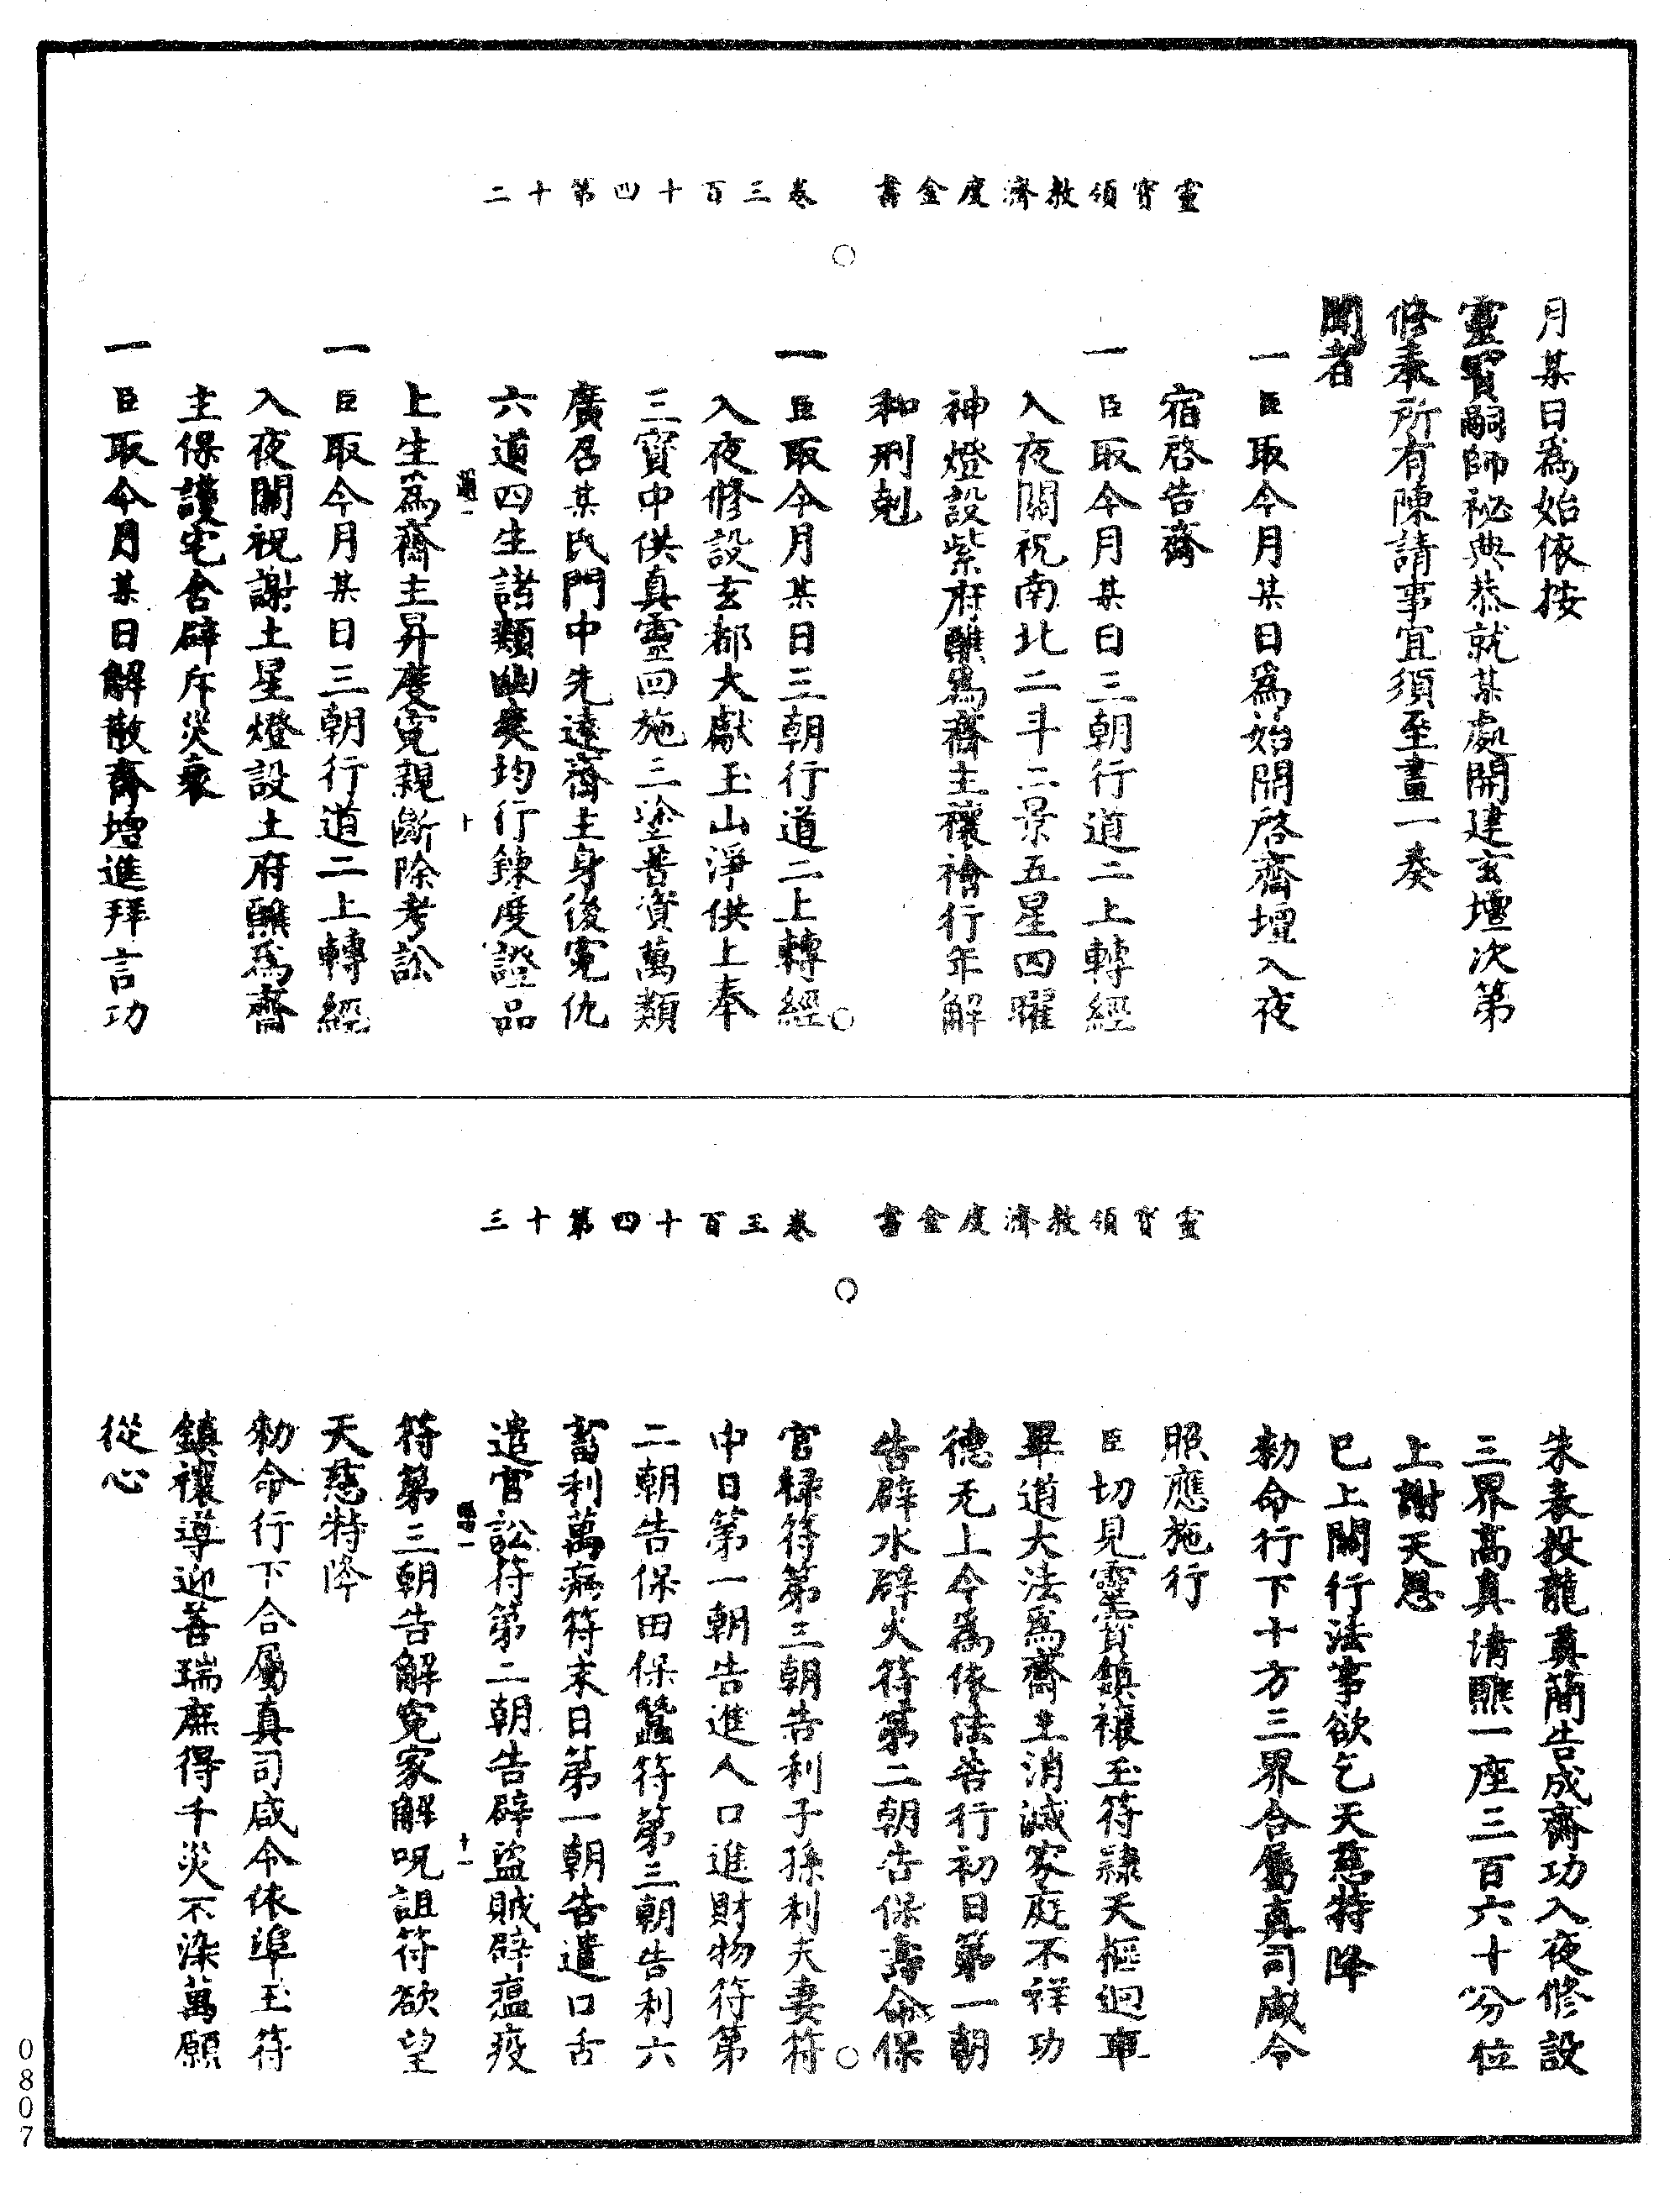 靈寶領教濟度金書　卷三百十四第十二
月某日為始依按
靈寶嗣師祕典恭就某處開建玄壇次第
修奉所有陳請事宜須至畫一奏
聞者
一臣取今月某日為始開啓齋壇入夜
宿啓告齋
一臣取今月某日三朝行道二上轉經
入夜關祝南北二斗二景五星四曜
神燈設紫府醮為齋主禳禬行年解
和刑剋
一臣取今月某日三朝行道二上轉經
入夜修設玄都大獻玉山淨供上奉
三寶中供真靈回施三塗普資萬類
廣召某氏門中先遠齋主身後寃仇
六道四生諸類幽爽均行鍊度證品
十
上生為齋主昇度寃親斷除考訟
一臣取今月某日三朝行道二上轉經
入夜關祝謝土星燈設土府醮為齋
主保護宅舍辟斥災衰
一臣取今月某日解散齋壇進拜言功
靈寶領教濟度金書　卷三百十四第十三
朱表投龍奠簡告成齋功入夜修設
三界高真清醮一座三百六十分位
上謝天恩
已上關行法事欲乞天慈特降
勑命行下十方三界合屬真司咸令
照應施行
臣切見靈寶鎮禳玉符隸天樞迴車
畢道大法為齋主消滅家庭不祥功
德无上今為依法告行初日第一朝
告辟水辟火符第二朝告保壽命保
官祿符第三朝告利子孫利夫妻符
中日第一朝告進人口進財物符第
二朝告保田保蠶符第三朝告利六
畜利萬病符末日第一朝告遣口舌
遣官訟符第二朝告辟盜賊辟瘟疫
十一
符第三朝告解寃家解呪詛符欲望
天慈特降
勑命行下合屬真司咸令依準玉符
鎮禳導迎善瑞庶得千災不染萬願
從心
0807